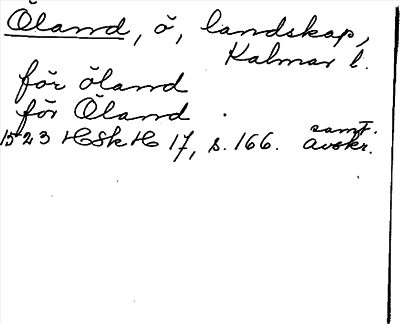 Öland, ö, landskap,
Kalmar l.
för öland
för Öland
samt.
1523 HSkH 17, s. 166. avskr.